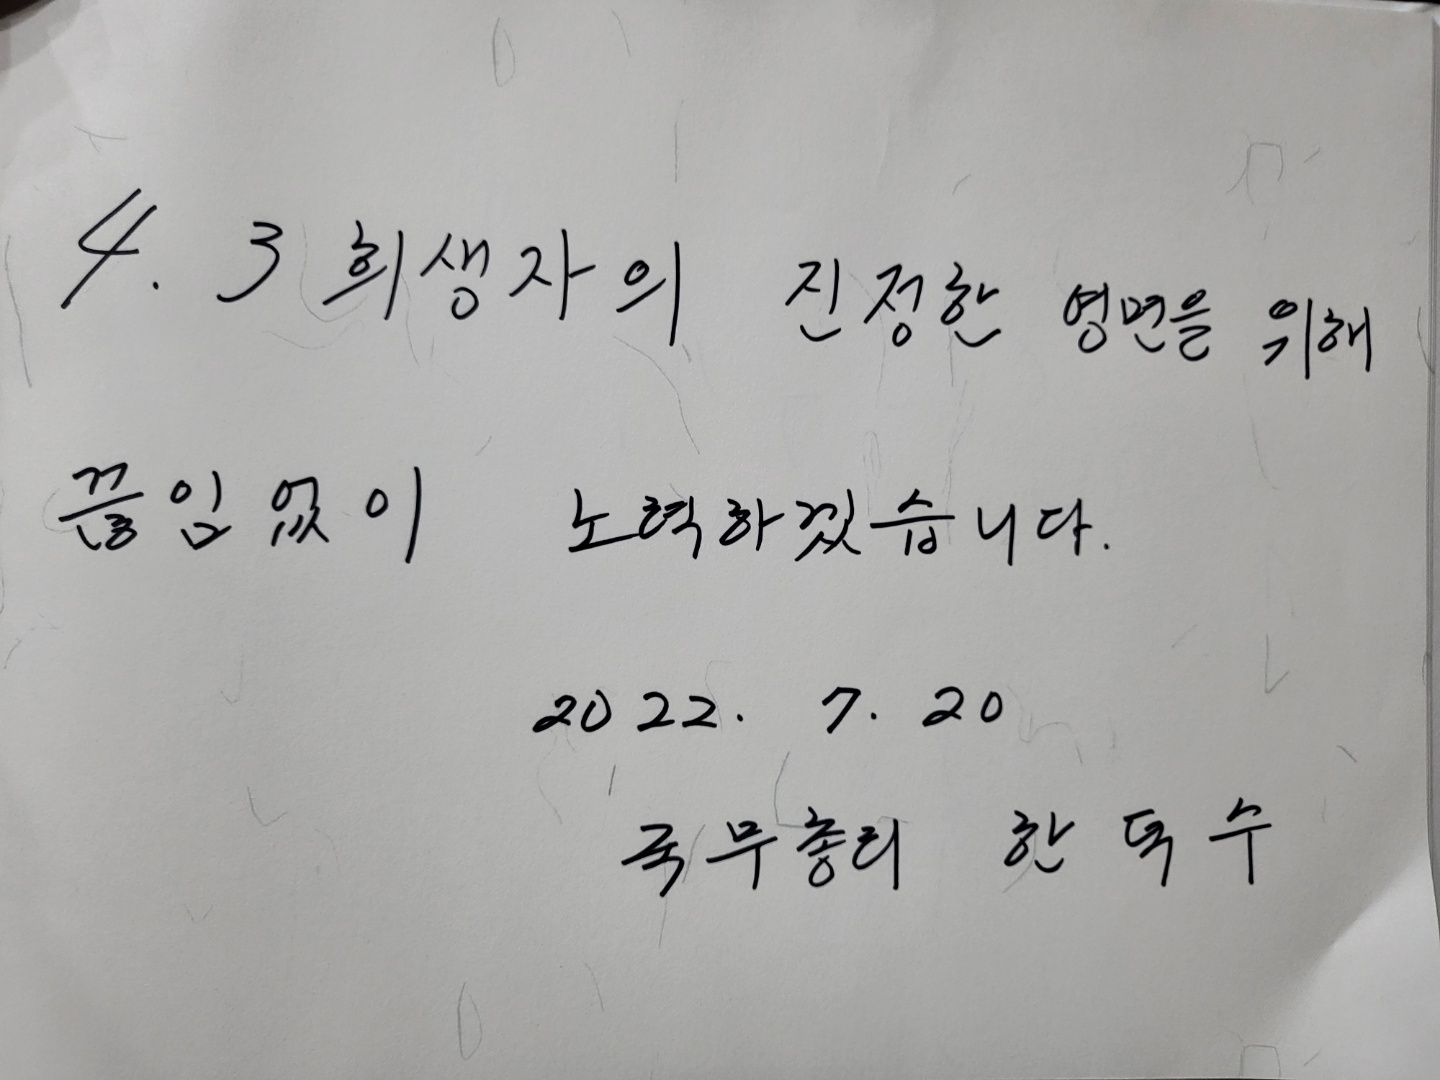 4. 3 희생자의 진정한 영면을 위해
끊임없이 노력하겠습니다.
2022. 7. 20
국무총리 한덕수